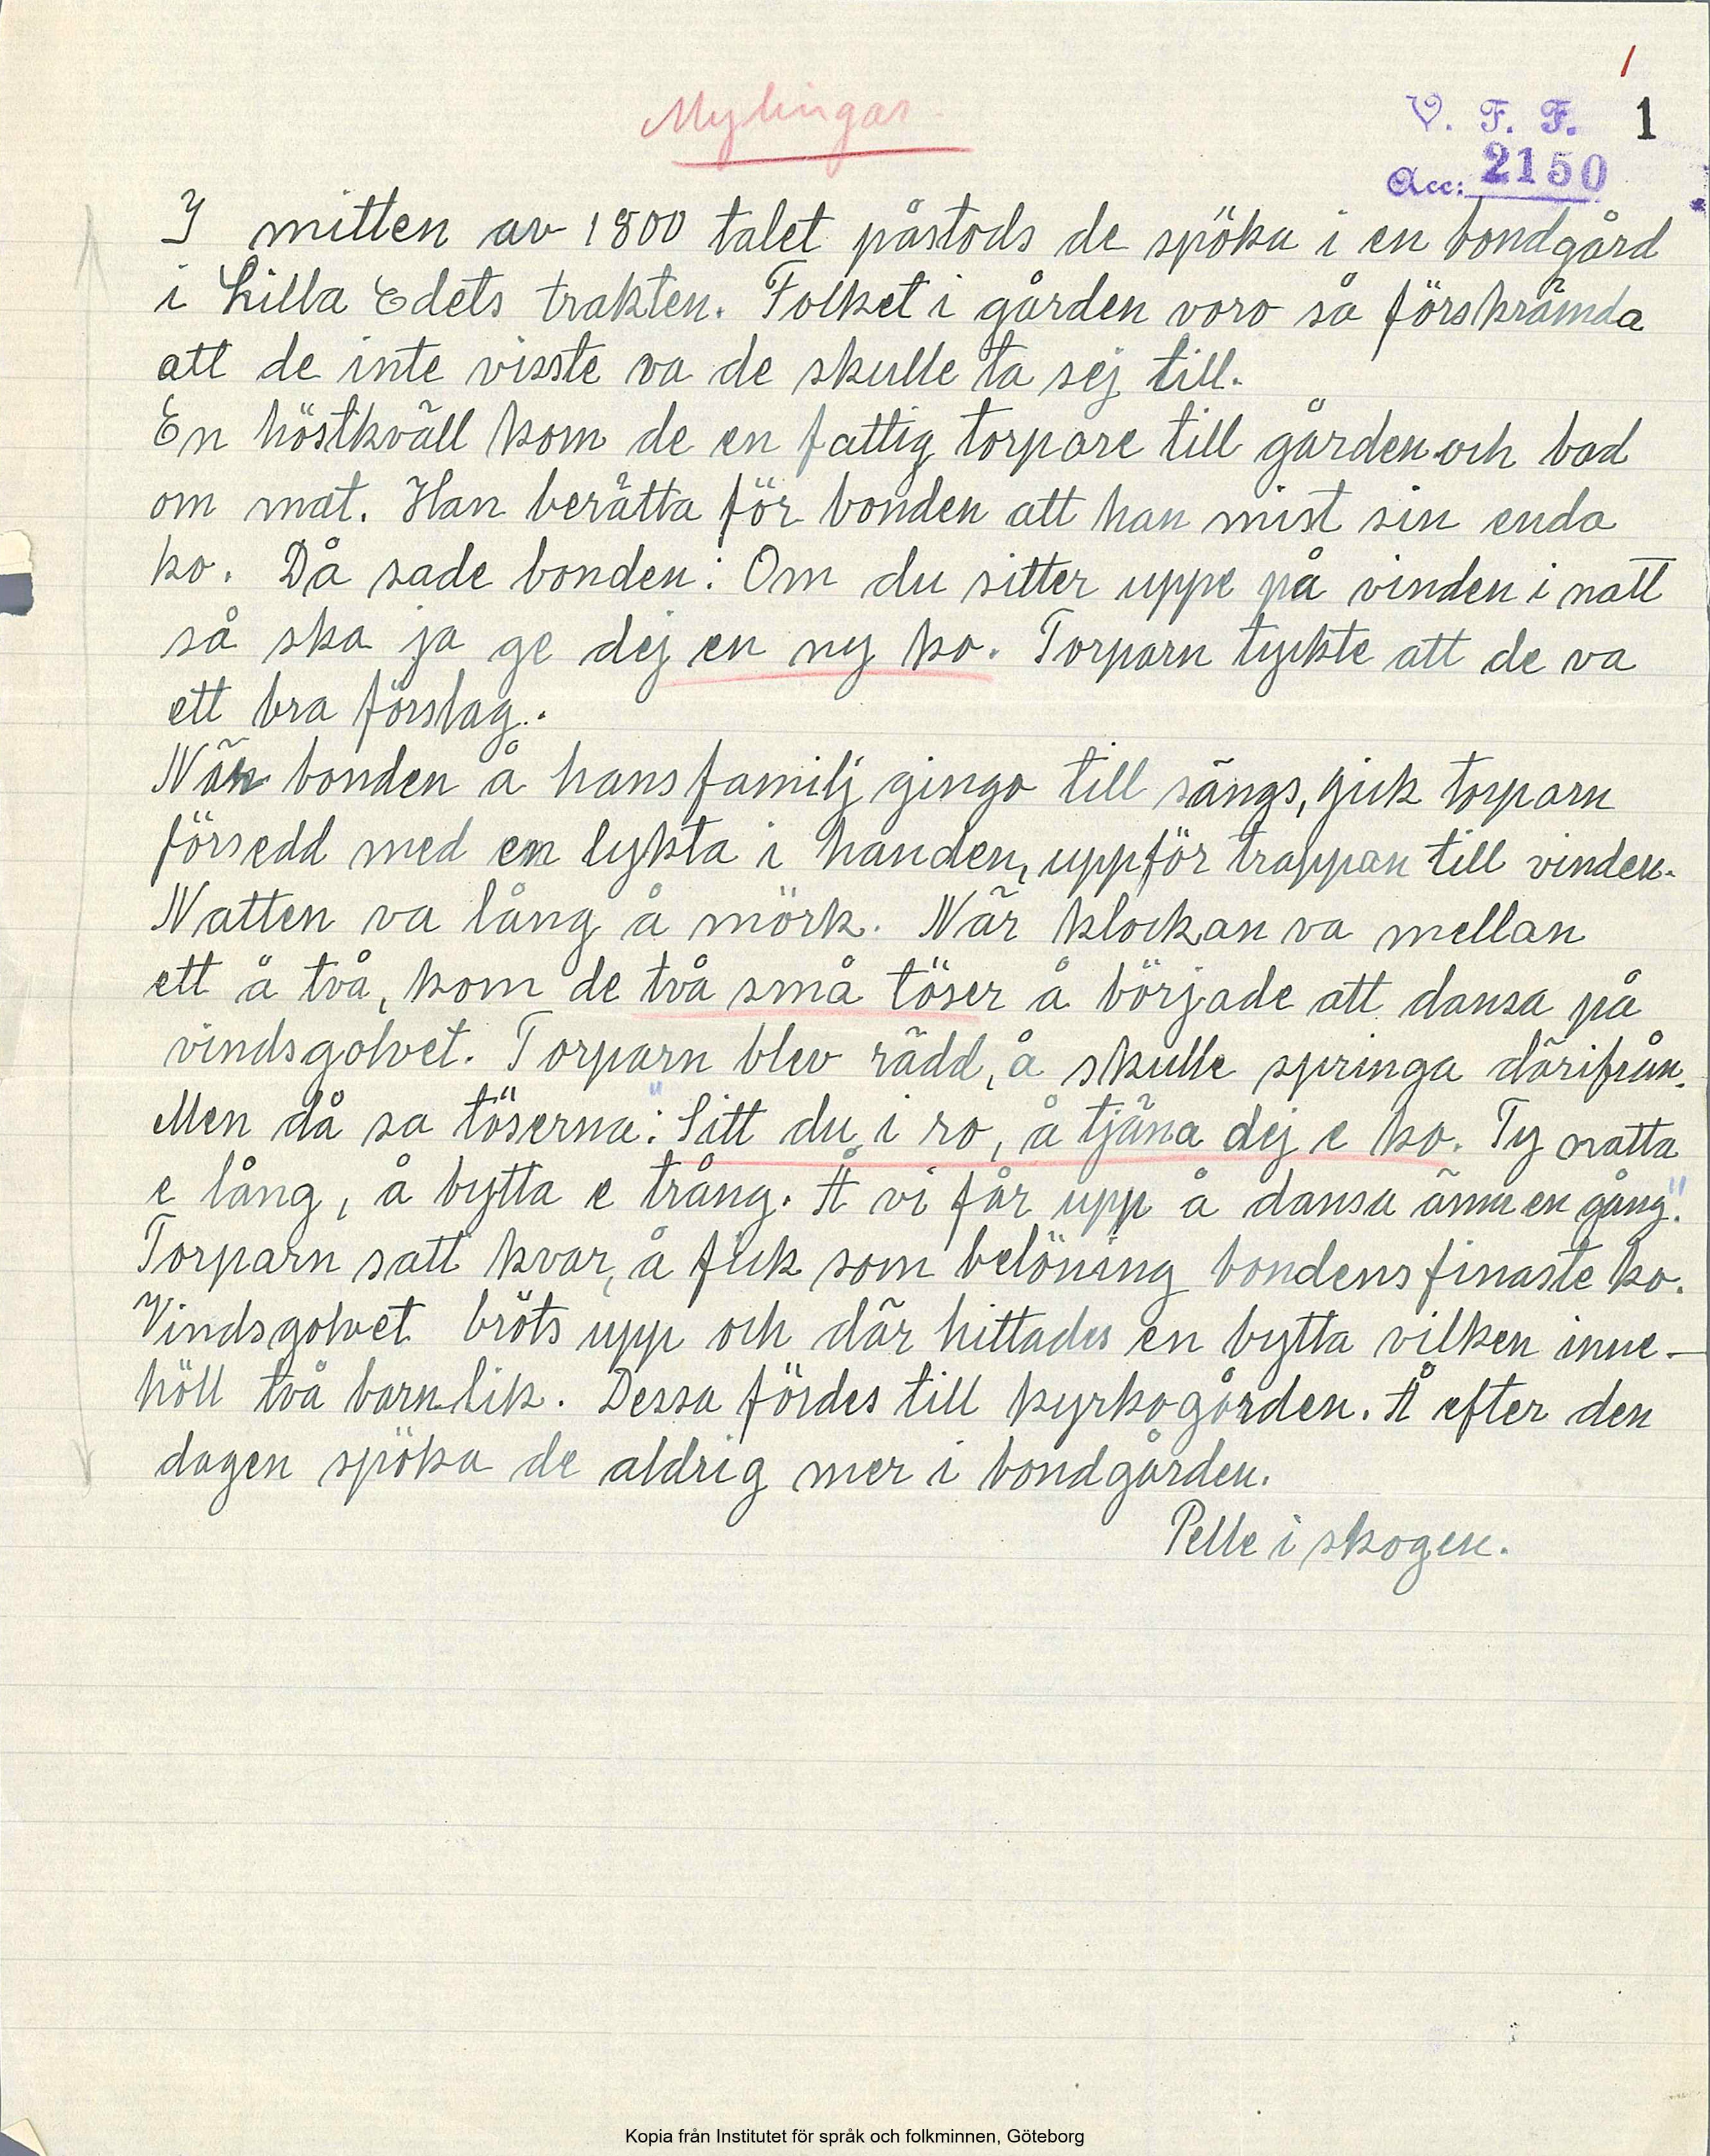 /
Mylingar.
V. F. F. 1
Acc: 2150
I mitten av 1800 talet påstods de spöka i en bondgård
i Lilla Edets trakten. Folket i gården voro så förskrämda
att de inte visste va de skulle ta sej till.
En höstkväll kom de en fattig torpare till gården och bad
om mat. Han berätta för bonden att han mist sin enda
ko. Då sade bonden: Om du sitter uppe på vinden i natt
så ska ja ge dej en ny ko. Torparn tyckte att de va
ett bra förslag.
När bonden å hans familj gingo till sängs, gick torparn
försedd med en lykta i handen, uppför trappan till vinden.
Natten va lång å mörk. När klockan va mellan
ett å två, kom de två små töser å började att dansa på
vindsgolvet. Torparn blev rädd, å skulle springa därifrån.
Men då sa töserna: "Sitt du i ro, å tjäna dej e ko. Ty natta
e lång, å bytta e trång. Å vi får upp å dansa ännu en gång."
Torparn satt kvar, å fick som belöning bondens finaste ko.
Vindsgolvet bröts upp och där hittades en bytta vilken inne-
höll två barnlik. Dessa fördes till kyrkogården. Å efter den
dagen spöka de aldrig mer i bondgården.
Pelle i skogen.
Kopia från Institutet för språk och folkminnen, Göteborg